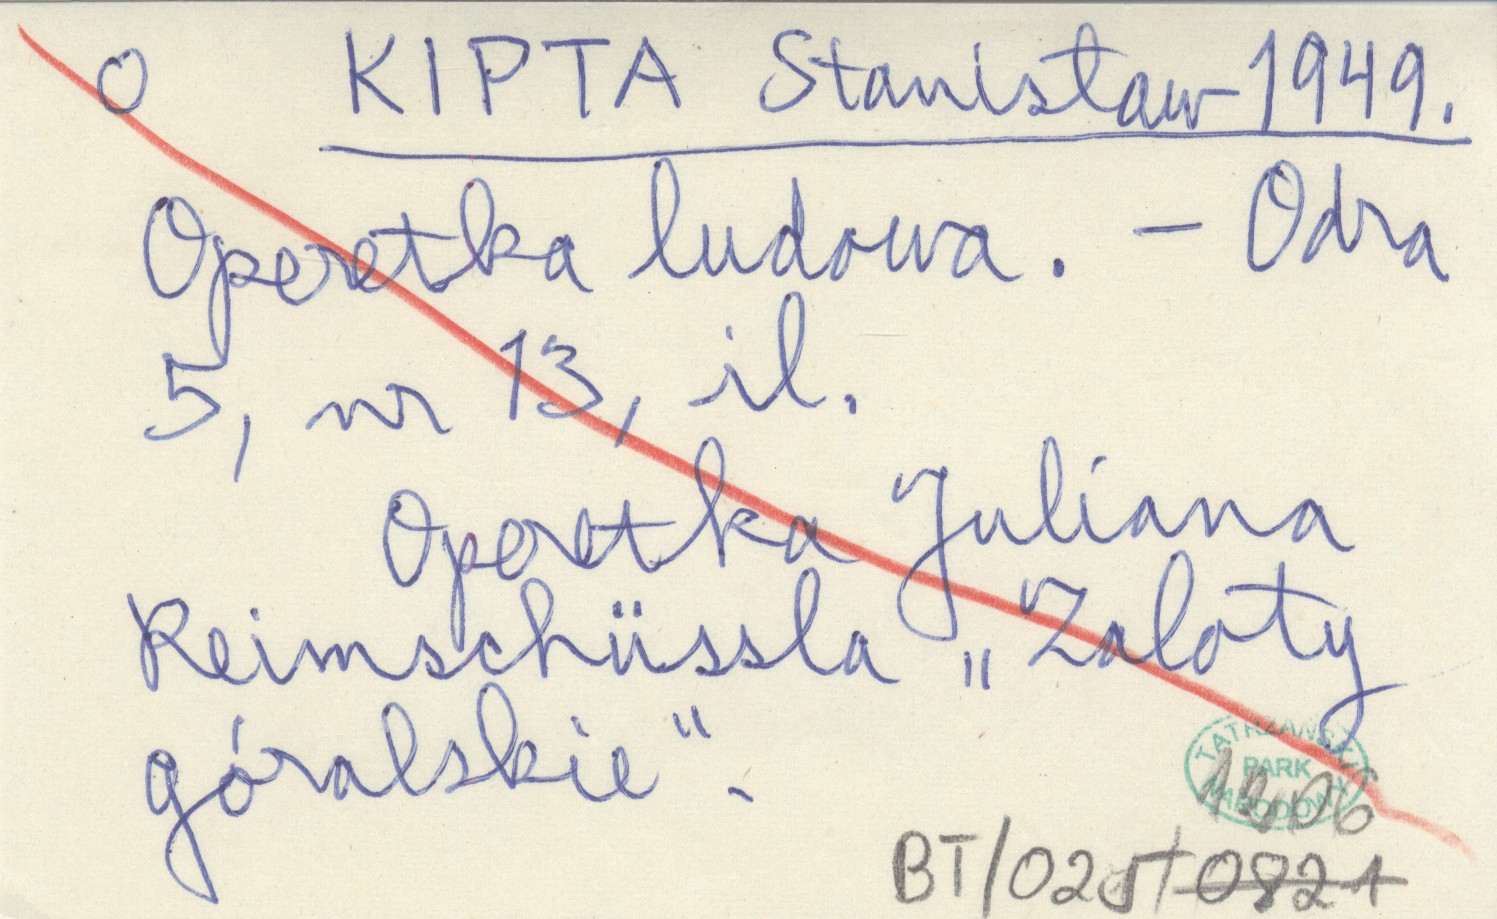 O KIPTA Stanisław 1949.
Operetka ludowa. – Odra
5, nr 13, il.
Operetka Juliana
Reimschüssla „Zaloty
góralskie".
TATRZAŃSKI
PARK
NARODOWY
1206
BT/025/0821